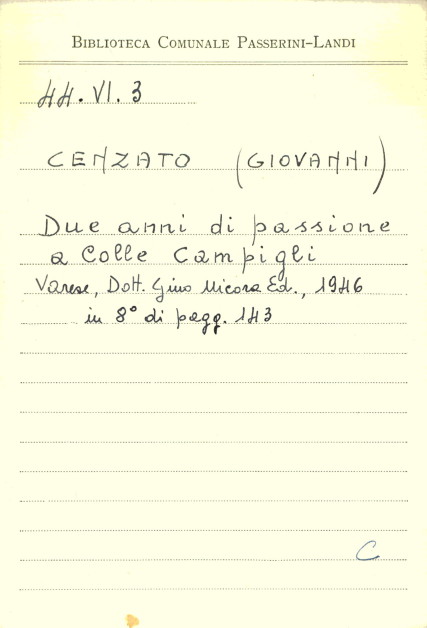 BIBLIOTECA COMUNALE PASSERINI-LANDI
44. VI. 3
CENZATO (GIOVANNI)
Due anni di passione
a Colle Campigli
Varese, Dott. Gino Nicora Ed., 1946
in 8° di pagg. 143
C